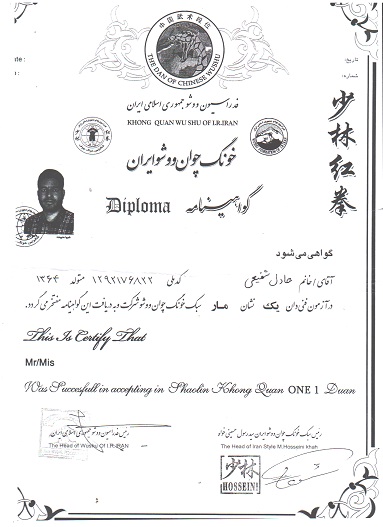 中国武术段位
THE DAN OF CHINESE WUSHU
تاریخ:
شماره:
فدراسیون ووشو جمهوری اسلامی ایران
KHONG QUAN WU SHU OF I.R.IRAN
خونگ چوان ووشو ایران
少林红拳
Diploma گواهینامه
گواهی می شود
آقای / خانم عادل شفیعی کد ملی ۱۲۹۲۱۷۶۸۲۲ متولد ۱۳۶۴
در آزمون فنی دان یک نشان مار سبک خونگ چوان ووشو شرکت و به دریافت این گواهینامه مفتخر می گردد.
This Is Certify That
Mr/Mis
Was Succesfull in accepting in Shaolin Khong Quan ONE 1 Duan
رئیس فدراسیون ووشو جمهوری اسلامی ایران
The Head of Wushu Of I.R.IRAN
رئیس سبک خونگ چوان ووشو ایران سید رسول حسینی خواه
The Head of Iran Style M.Hossein khah
少林
HOSSEINI